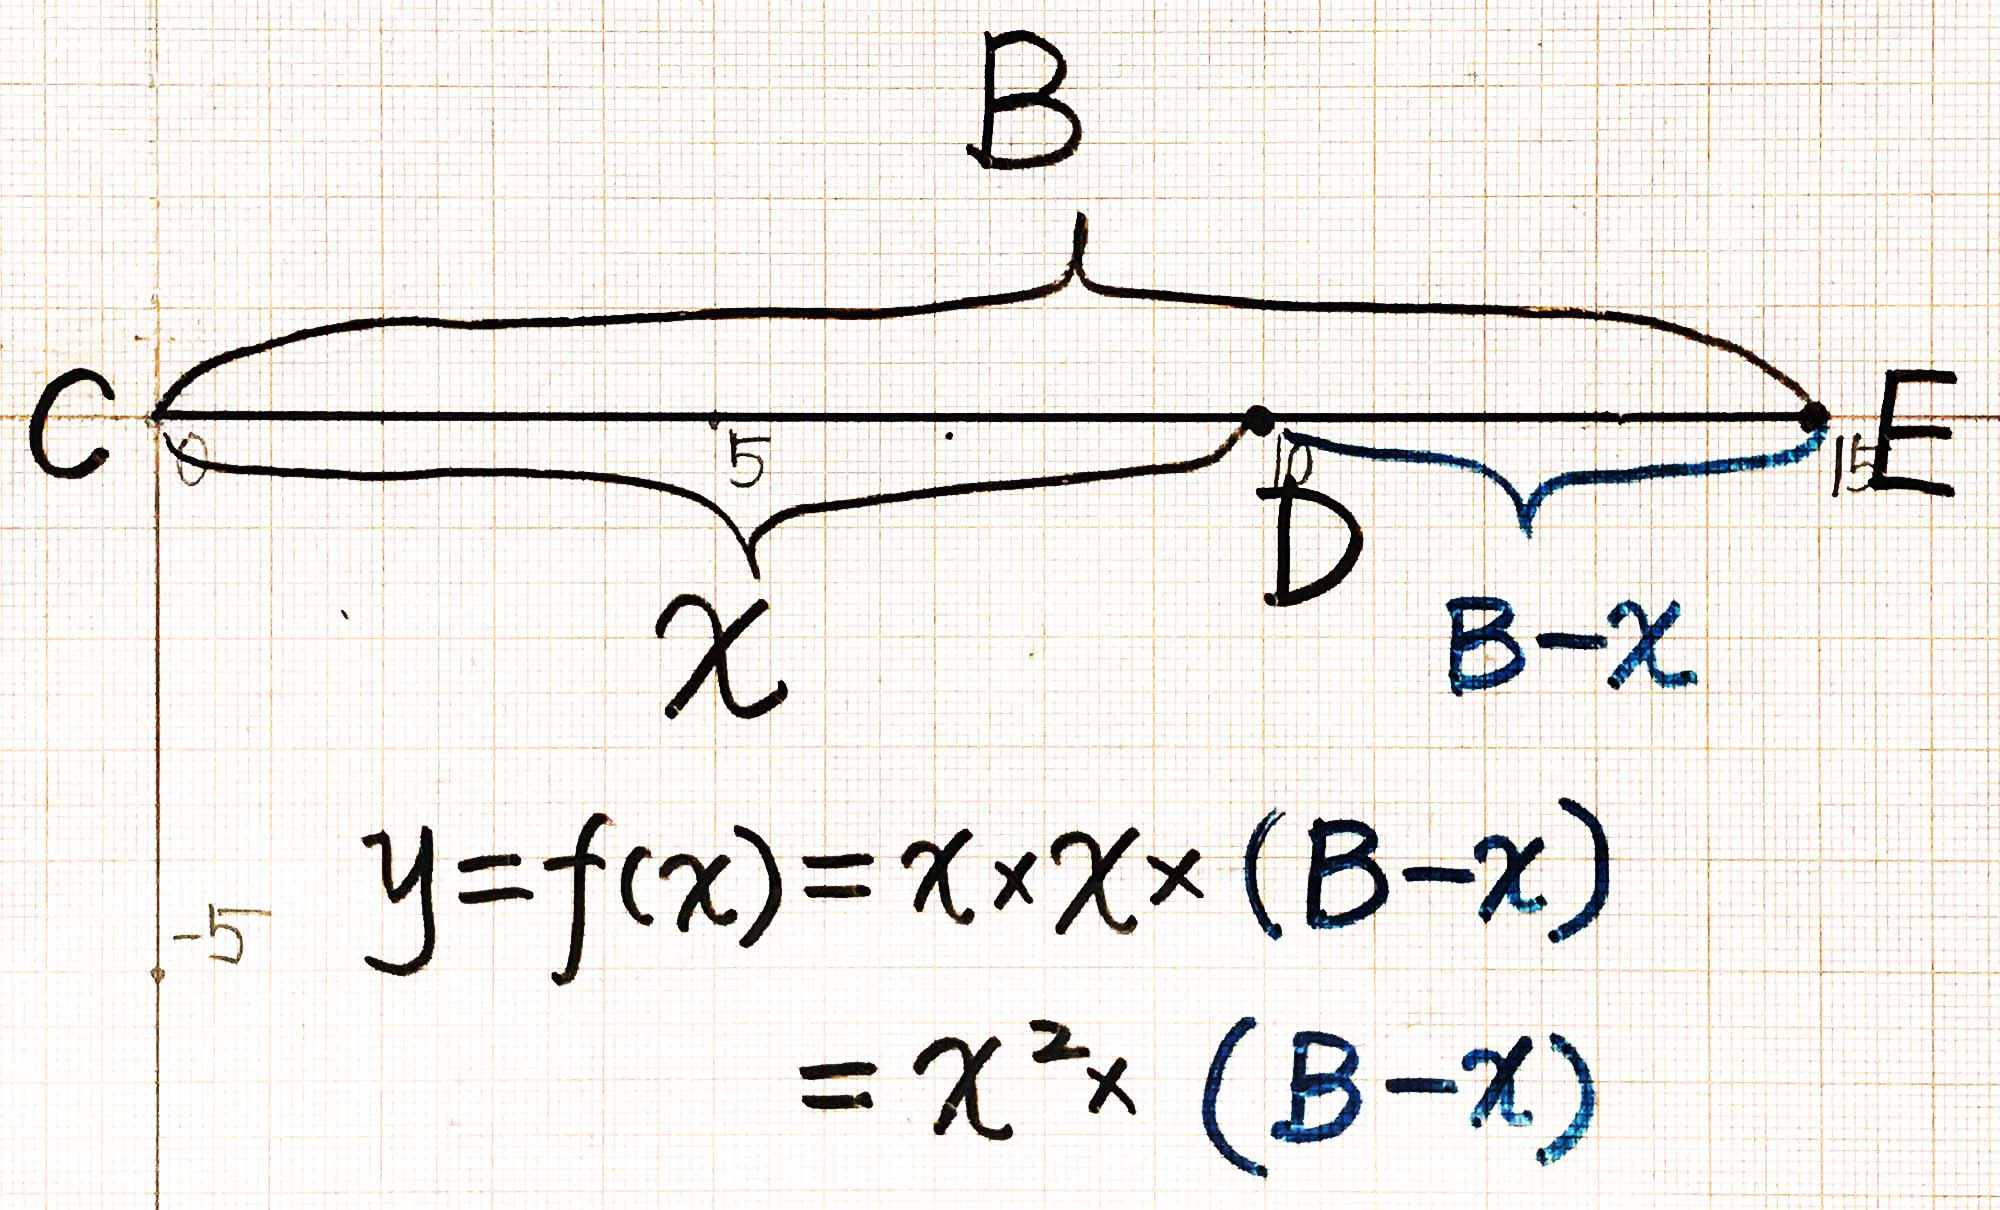 B
C 0 5 10 15 E
D
x
B-x
y=f(x)=x×x×(B-x)
-5
=x²×(B-x)